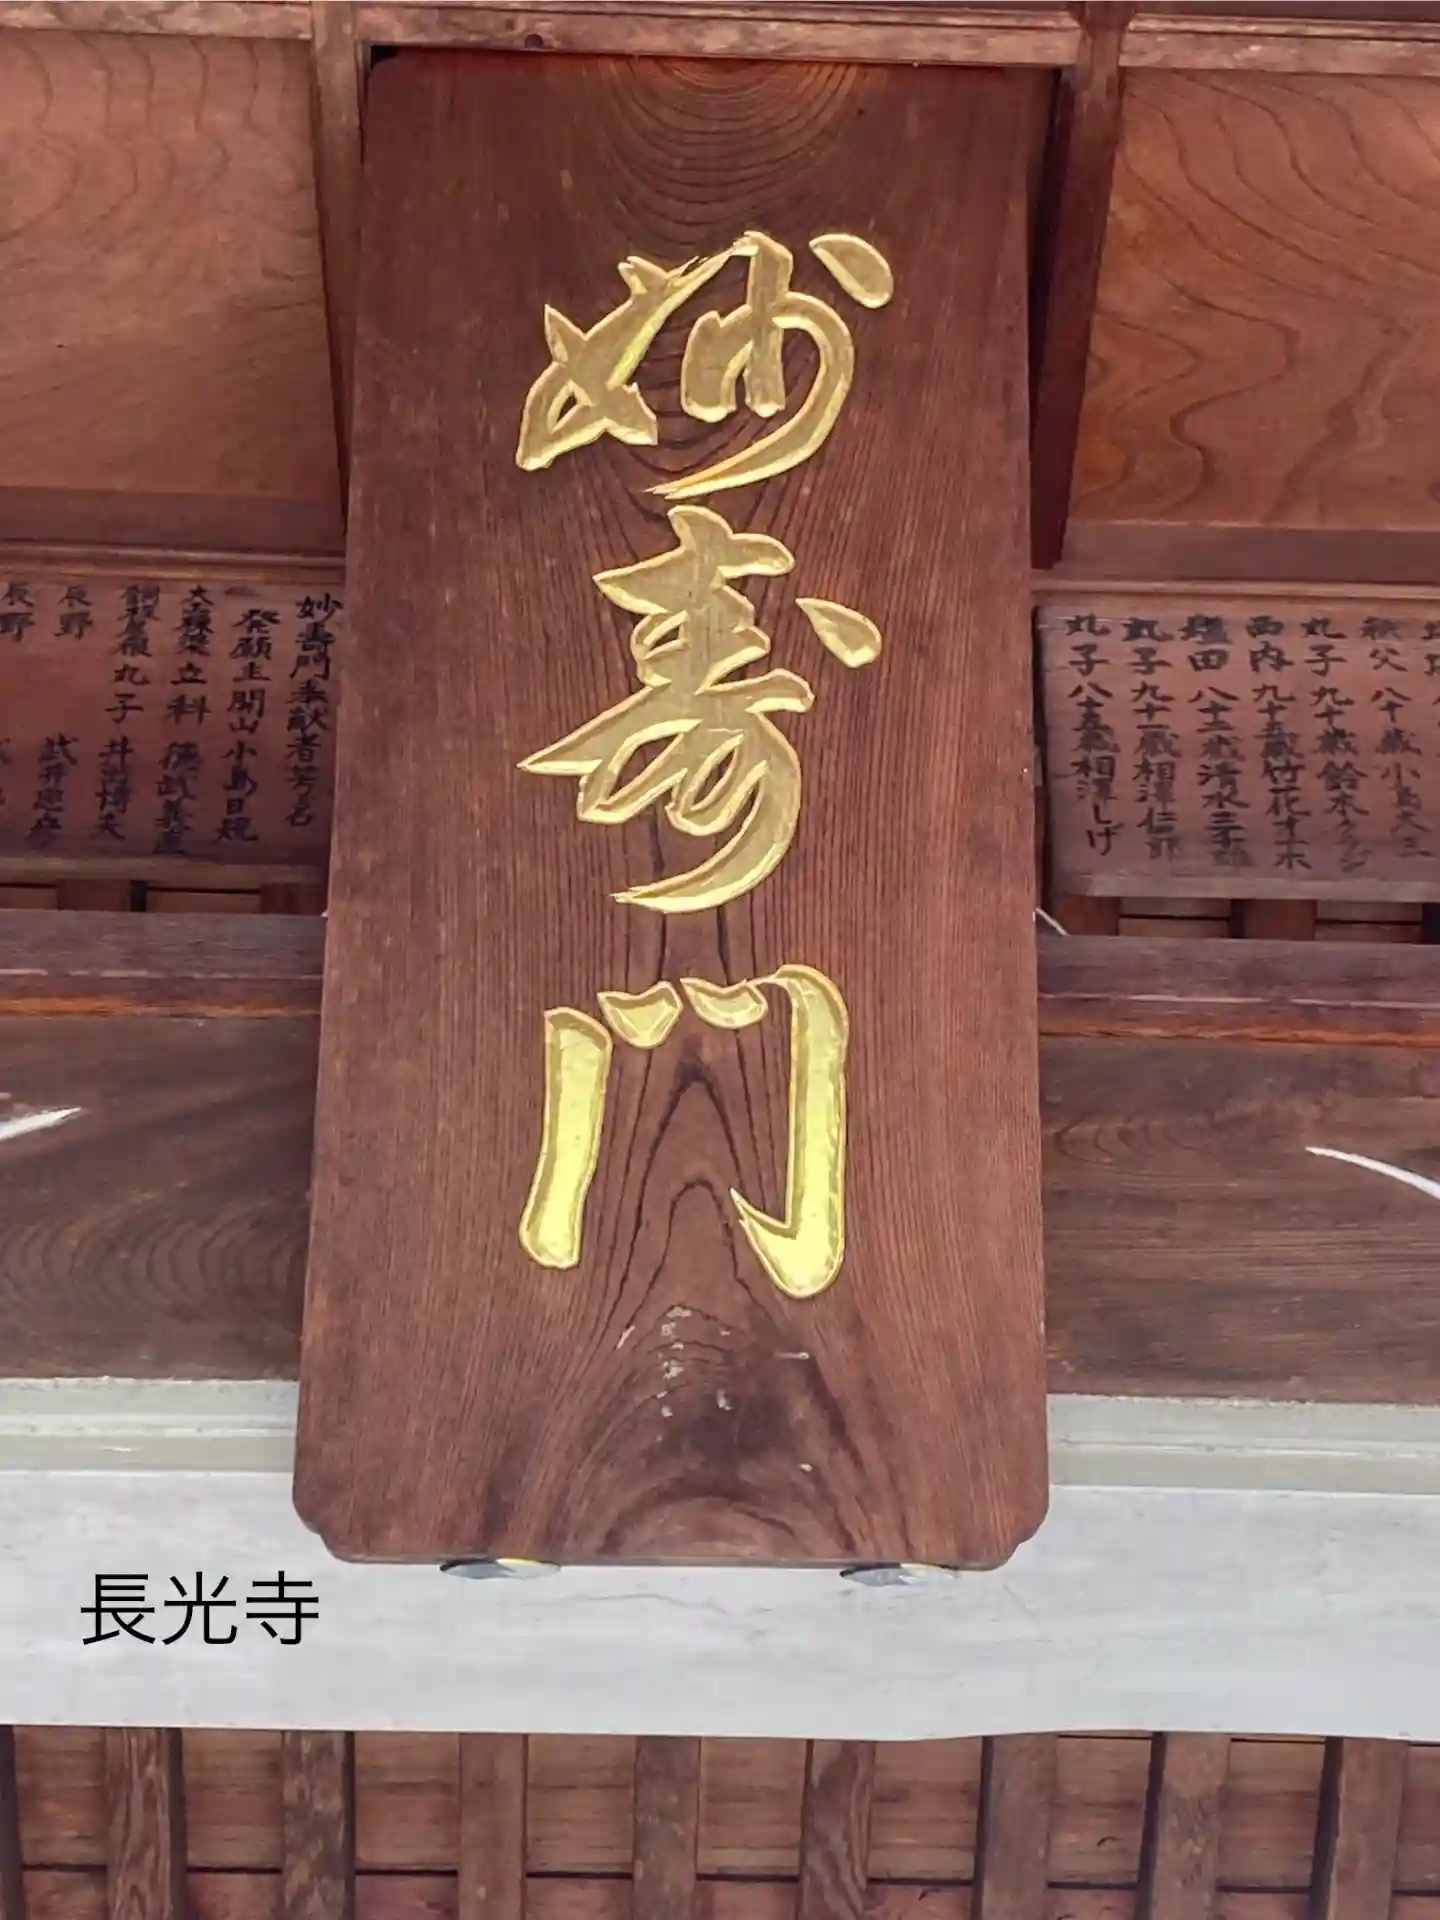 妙寿門
丸子 八十五歳 相澤しげ
丸子 九十一歳 相澤仁郎
塩田 八十二歳 清水三千雄
西内 九十五歳 竹花才木
丸子 九十歳 鈴木クラジ
秩父 八十歳 小島大三
妙壽門奉献者芳名
発願主 開山 小島日規
大森梁 立科 徳武義
銅板屋根 丸子 井
辰野 武井
辰野
長光寺